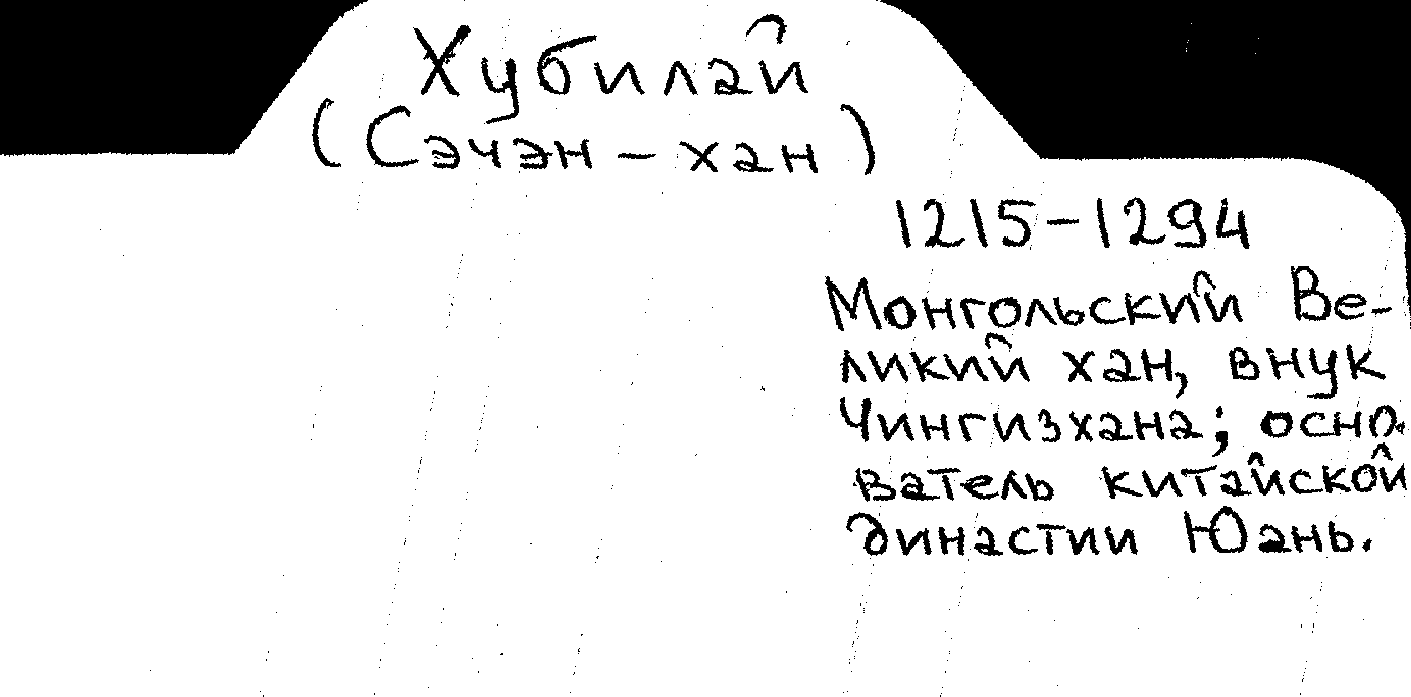 Хубилай
(Сэчэн-хан)
1215-1294
Монгольский Ве-
ликий хан, внук
Чингизхана; осно-
ватель китайской
династии Юань.